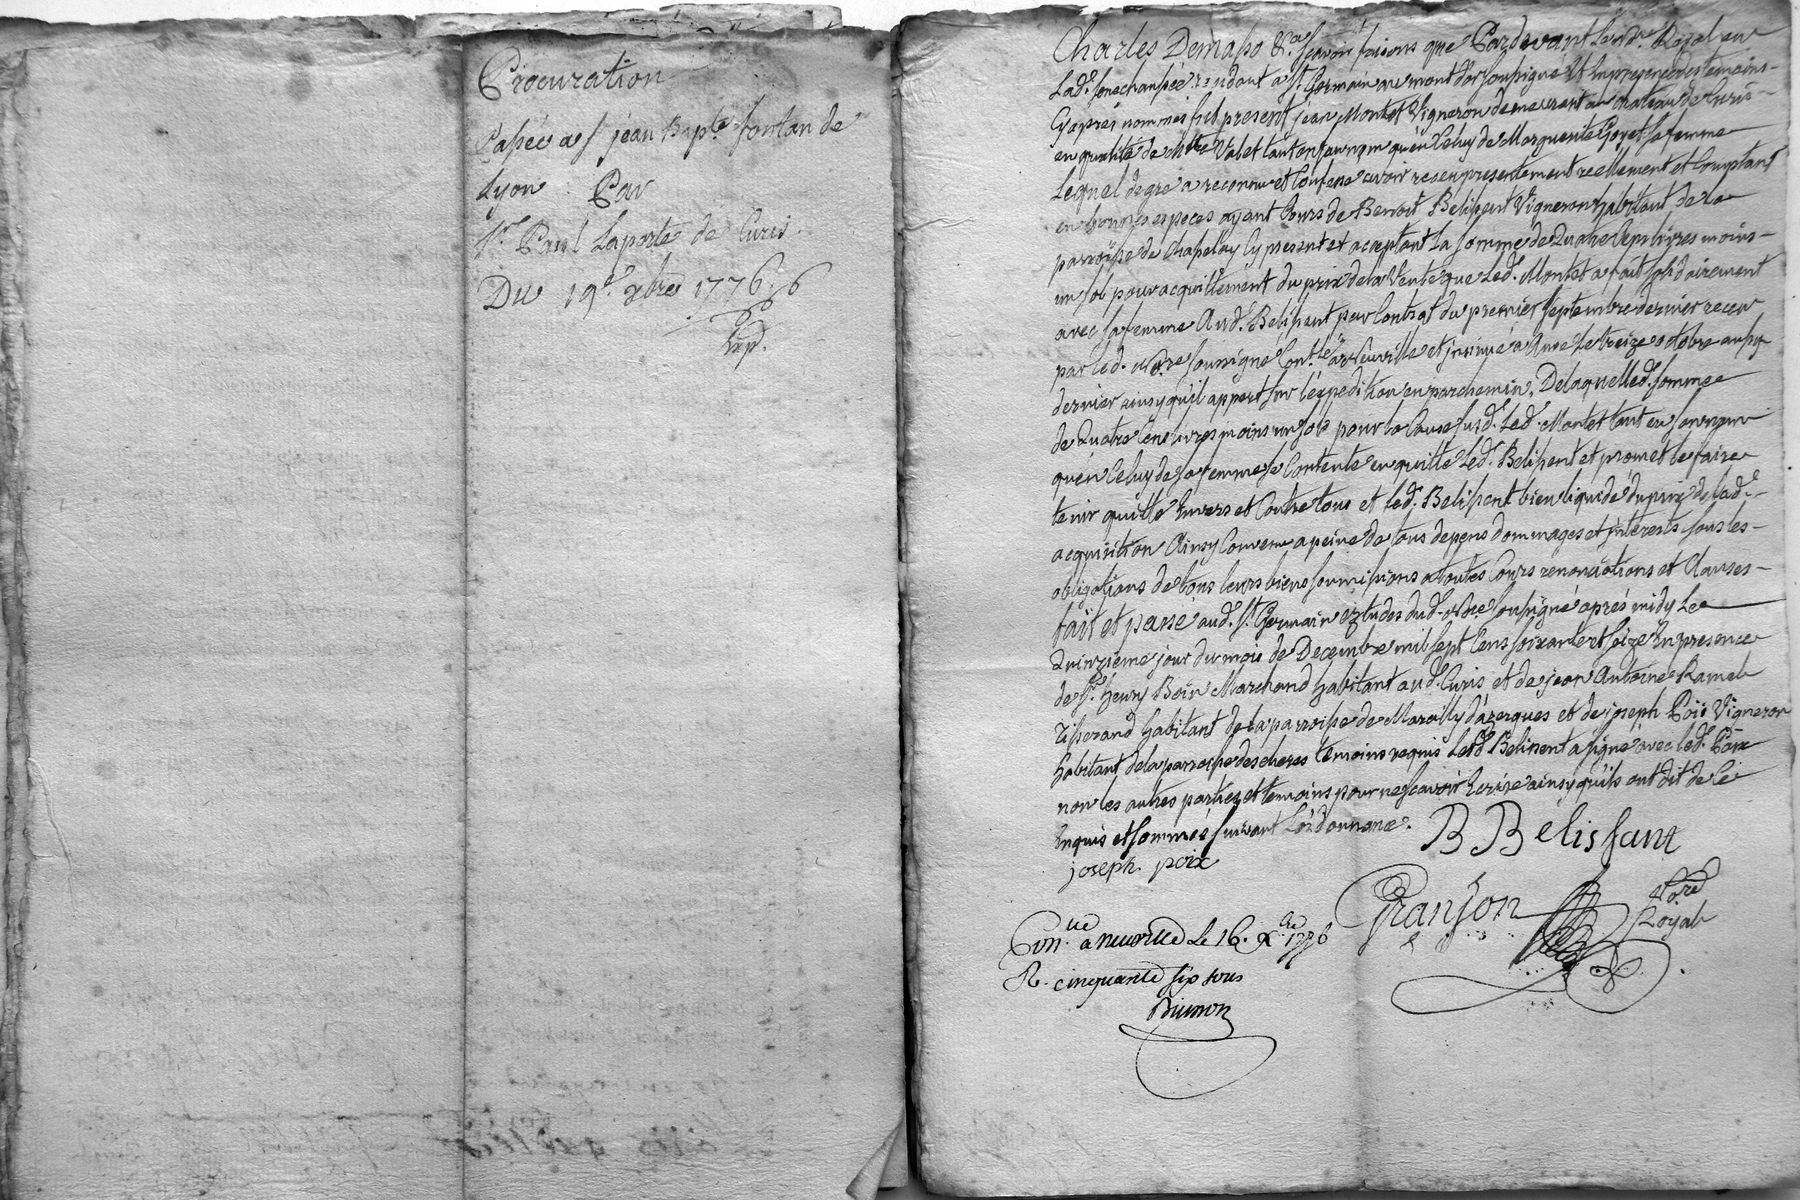 Procuration
Passée a s. jean Bapte. fontan de
Lyon Par
Sr. Paul Laporte de Curis.
Du 19e. xbre 1776
Exp.
Charles Demaso &a. scavoir faisons que Pardevant le nore. Royal en
Lad. senechaussée residant a St. Germain au mont d'or soussigné Et En presence des temoins
Cy après nommés fut present jean Montet Vigneron demeurant au chateau de Curis
en qualité de Mtre Valet tant en son nom qu'en Celuy de Marguerite Goyet sa femme
Lequel de gré a reconnu et Confessé avoir reçu presentement reellement et Comptant
en bonnes especes ayant Cours de Benoit Belissent Vigneron habitant de la
parroisse de Chasselay Cy present et acceptant La somme de Quatre Cens livres moins
un sol pour acquittement du prix de la Vente que Led. Montet a fait solidairement
avec sa femme Aud. Belissent par Contrat du premier septembre dernier reçu
par led. nore soussigné Contlé. a Neuville et insinué à Anse le treize octobre aussy
dernier ainsy qu'il appert sur l'expedition en parchemin, De laquelle d. somme
de Quatre Cens livres moins un sol pour la Cause susd. Led. Montet tant en son nom
qu'en Celuy de sa femme se Contente en quitte Led. Belissent et promet le faire
tenir quitte Envers et Contre tous et led. Belissent bien liquide du prix de lad.
acquisition Ainsy Convenu a peine de tous depens dommages et interests sous les
obligations de tous leurs biens soumissions a toutes Cours renonciations et Clauses
fait et passé aud. St. Germain Etudes dud. nore soussigné après midy Le
Quinzieme jour du mois de Decembre mil sept Cens soixante et seize En presence
de Sr. henry Boin Marchand habitant aud. Curis et de jean Antoine Ramel
Tisserand habitant de la parroisse de Marcilly d'azergues et de joseph Poix Vigneron
habitant de la parroisse des cheres temoins requis Led. Belissent a signé avec led. Poix
non les autres parties et temoins pour ne scavoir Ecrire ainsy qu'ils ont dit de Ce
Enquis et sommés suivant L'ordonnance.
B Belissant
joseph poix
Granjon nore
Royal
Conlle a neuville Le 16. Xbre 1776
R. cinquante six sous